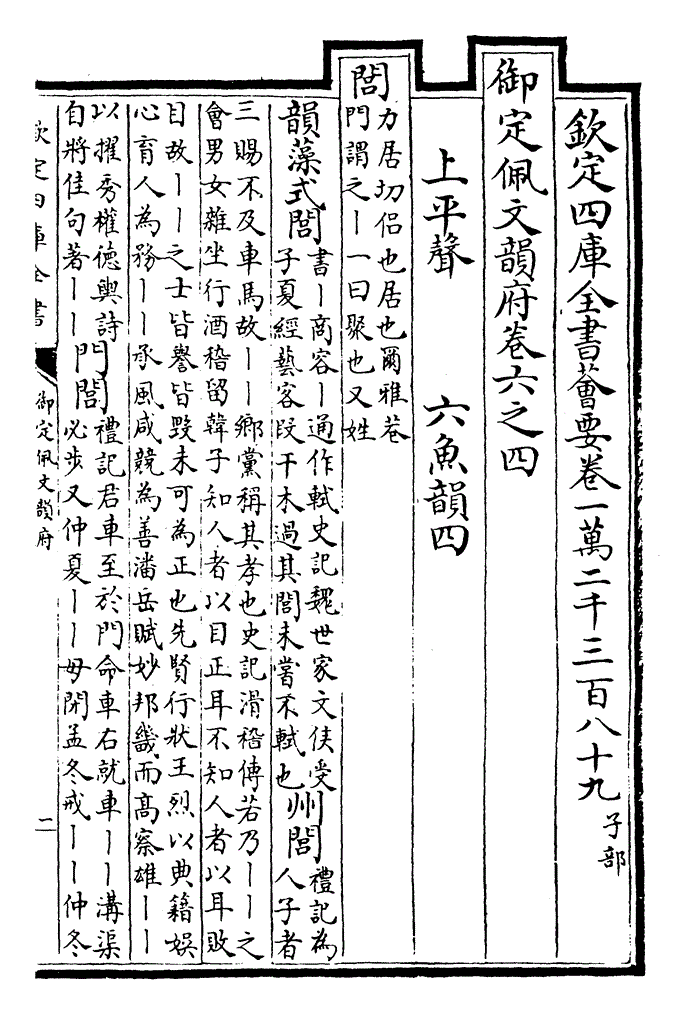 欽定四庫全書薈要卷一萬二千三百八十九 子部
御定佩文韻府卷六之四
上平聲 六魚韻四
閭
力居切侶也居也爾雅巷
門謂之丨一曰聚也又姓
韻藻式閭
書丨商容丨通作軾史記魏世家文侯受
子夏經藝客段干木過其閭未嘗不軾也
州閭
禮記為
人子者
三賜不及車馬故丨丨鄉黨稱其孝也史記滑稽傳若乃丨丨之
會男女雜坐行酒稽留韓子知人者以目正耳不知人者以耳敗
目故丨丨之士皆譽皆毀未可為正也先賢行狀王烈以典籍娛
心育人為務丨丨承風咸競為善潘岳賦妙邦畿而高察雄丨丨
以擢秀權德輿詩
自將佳句著丨丨
門閭
禮記君車至於門命車右就車丨丨溝渠
必步又仲夏丨丨毋閉孟冬戒丨丨仲冬
欽定四庫全書
御定佩文韻府
一